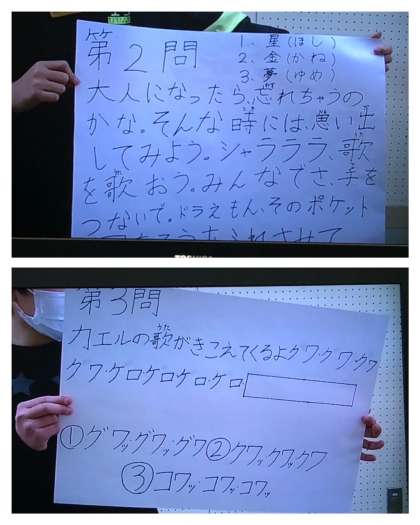 第2問
1、星(ほし)
2、金(かね)
3、夢(ゆめ)
大人になったら、忘れちゃうの
かな。そんな時には、思い出
してみよう。シャラララ、歌
を歌おう。みんなでさ、手を
つないで。ドラえもん、そのポケット
TOSHIBA
第3問
カエルの歌がきこえてくるよクワ・クワ・クヮ
うた
クワ・ケロケロケロ・ケロ
①グワッ・グワッ・グワ②クワッ・クワックワ
③コワッ・コワッコワッ